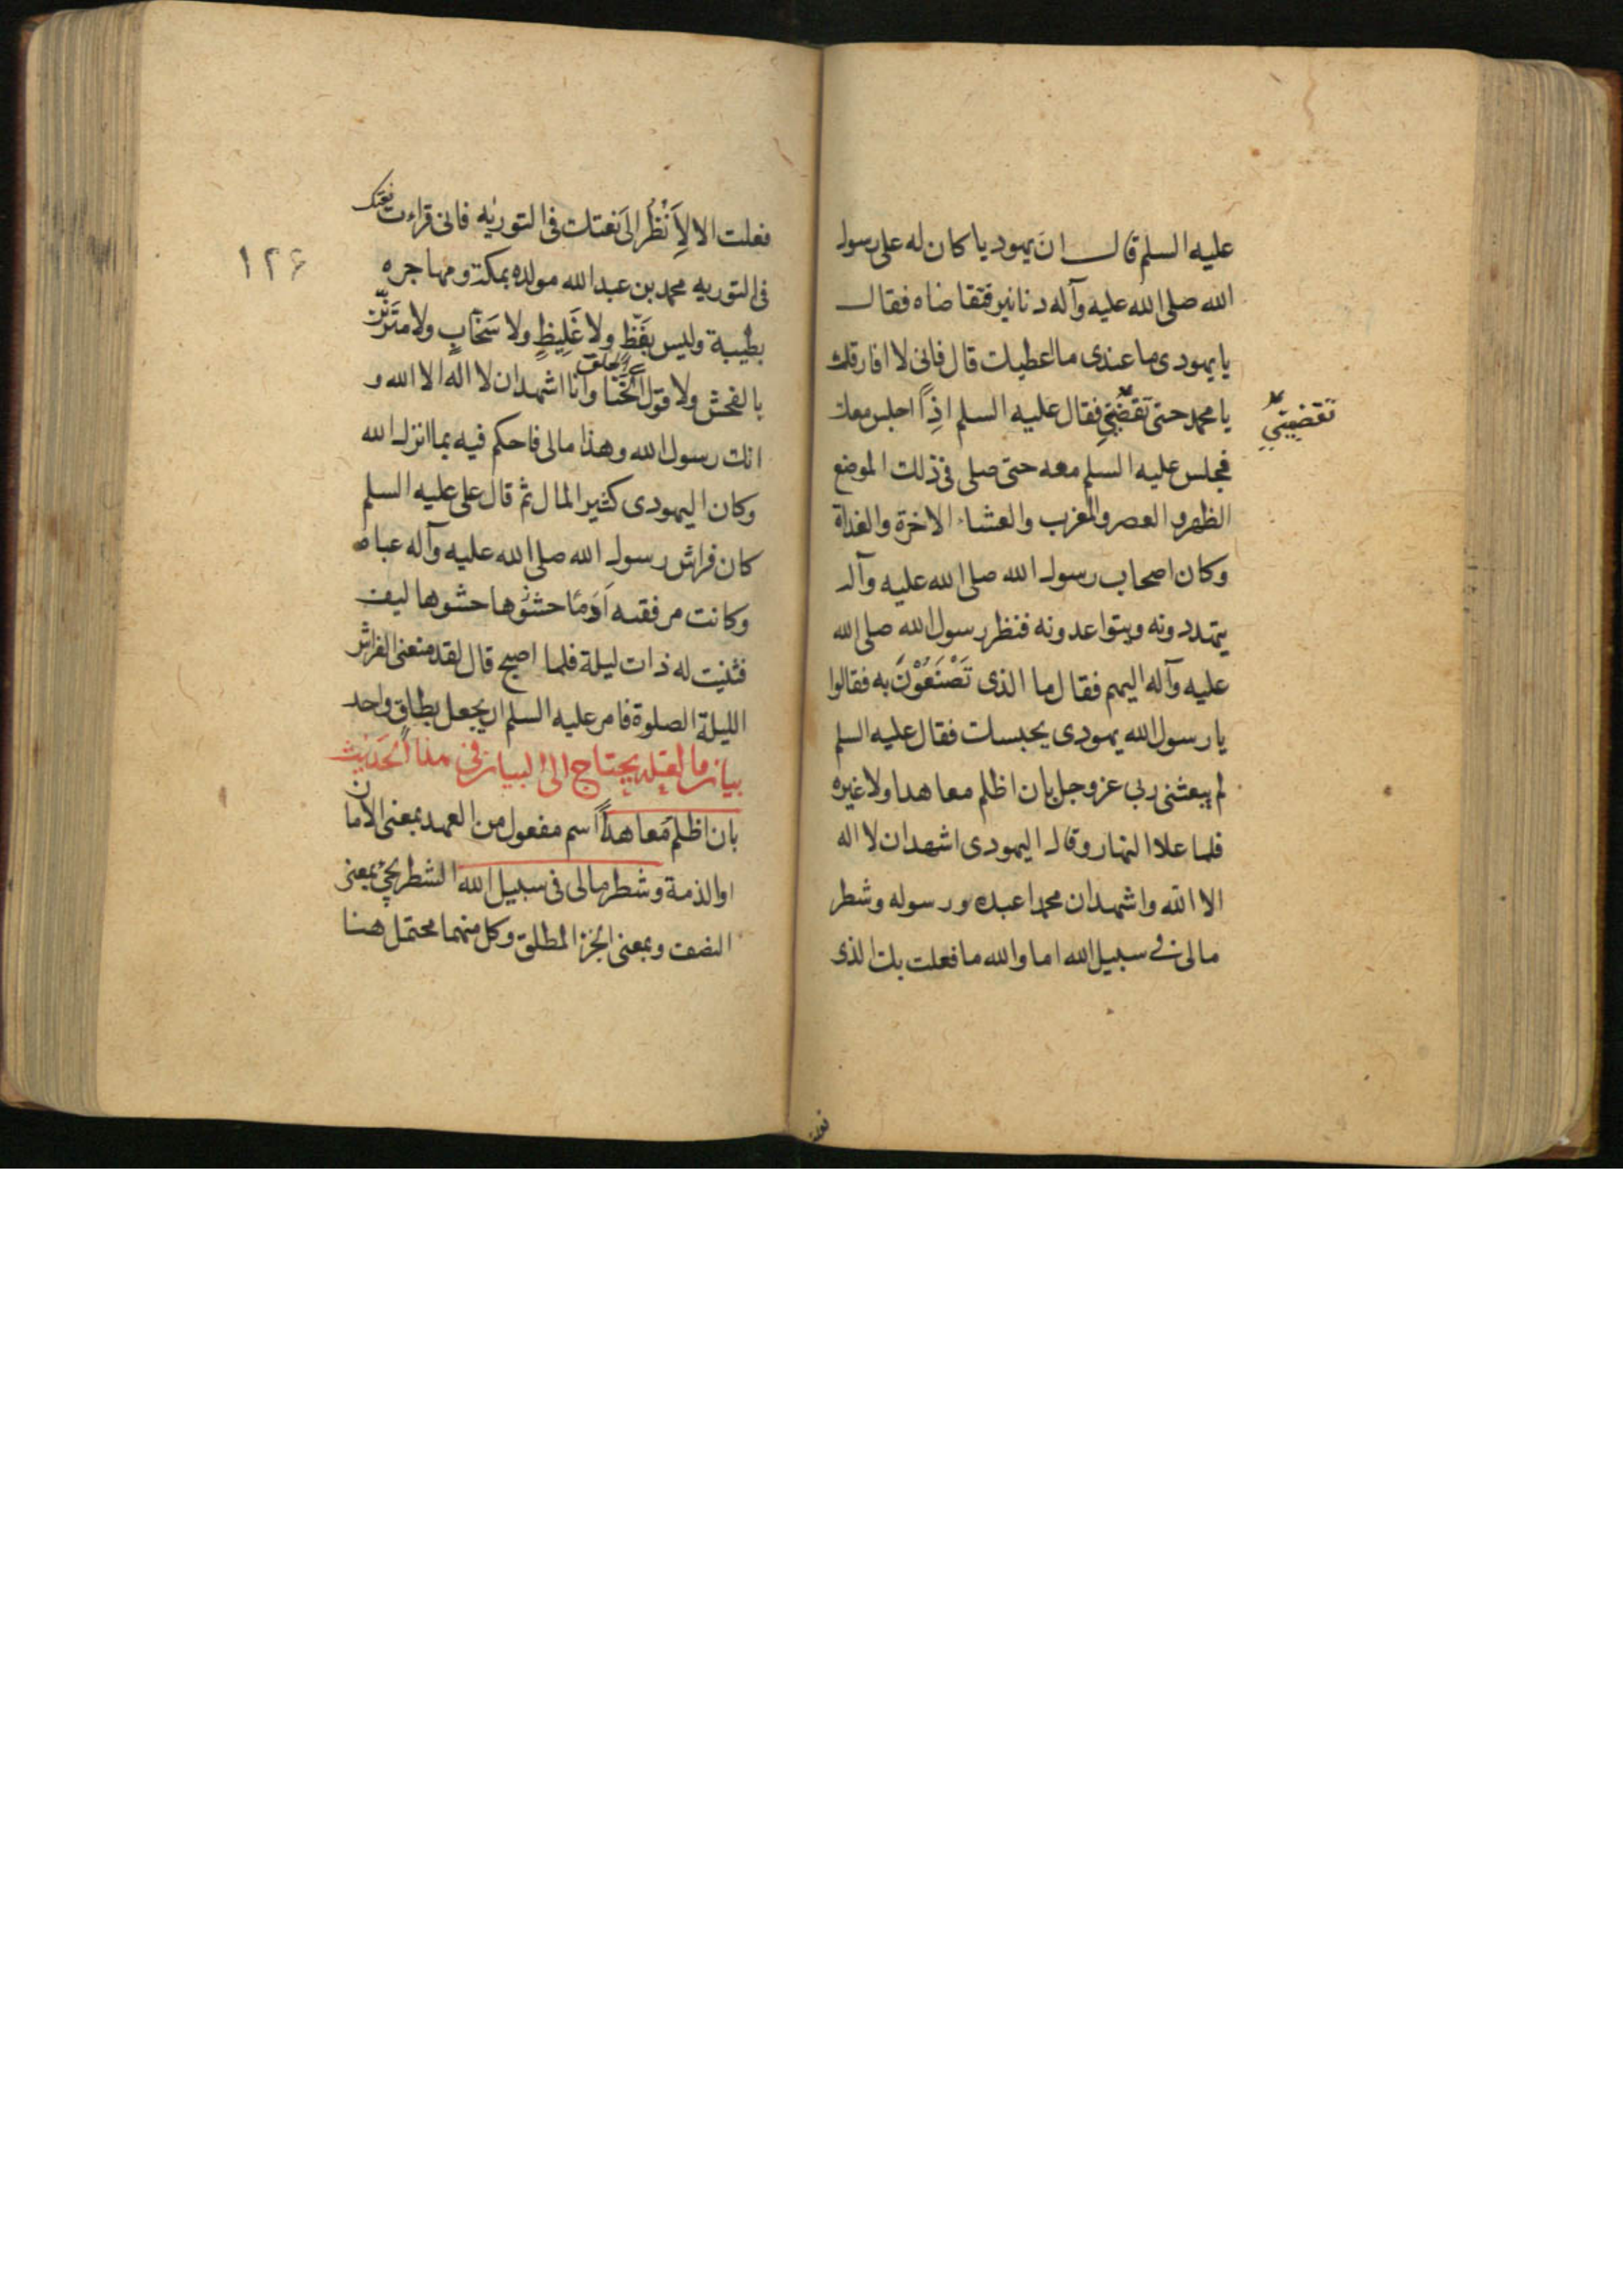 عليه السلم قال ان يهوديا كان له على رسول
الله صلى الله عليه وآله دنانير فتقاضاه فقال
يا يهودى ما عندى ما اعطيك قال فانى لا افارقك
يا محمد حتى تقضينى فقال عليه السلم اذاً اجلس معك
تقضينى
فجلس عليه السلم معه حتى صلى فى ذلك الموضع
الظهر و العصر والمغرب والعشاء الاخرة والغداة
وكان اصحاب رسول الله صلى الله عليه وآله
يتهددونه ويتواعدونه فنظر رسول الله صلى الله
عليه وآله اليهم فقال ما الذى تَصْنَعُوْنَ به فقالوا
يا رسول الله يهودى يحبسك فقال عليه السلم
لم يبعثنى ربى عز وجل بان اظلم معاهدا ولا غيره
فلما علا النهار وقال اليهودى اشهد ان لا اله
الا الله واشهد ان محمدا عبده ورسوله وشطر
مالى فى سبيل الله اما والله ما فعلت بك الذى
فعلت
فعلت الا لِاَنْظُرَ الى نعتك فى التورية فانى قراءت نعتك
١٢۶
فى التورية محمد بن عبد الله مولده بمكة ومهاجره
بطيبة وليس بفَظٍّ ولا غَلِيظٍ ولا سَخَّابٍ ولا متزيّن
بالفحش ولا قول الخَنا وانا اشهد ان لا اله الا الله و
انك رسول الله وهذا مالى فاحكم فيه بما انزل الله
وكان اليهودى كثير المال ثم قال على عليه السلم
كان فراش رسول الله صلى الله عليه وآله عباه
وكانت مرفقه اَدَمًا حشوها ليف
فثنيت له ذات ليلة فلما اصبح قال لقد منعنى الفراش
الليلة الصلوة فامر عليه السلم ان يجعل بطاقٍ واحد
بيان ما لعله يحتاج الى البيان فى هذا الحديث
بان اظلم مُعاهداً اسم مفعول من العهد بمعنى الامان
او الذمة وشطر مالى فى سبيل الله الشطر يجئ بمعنى
النصف وبمعنى الجزء المطلق وكل منهما محتمل هنا